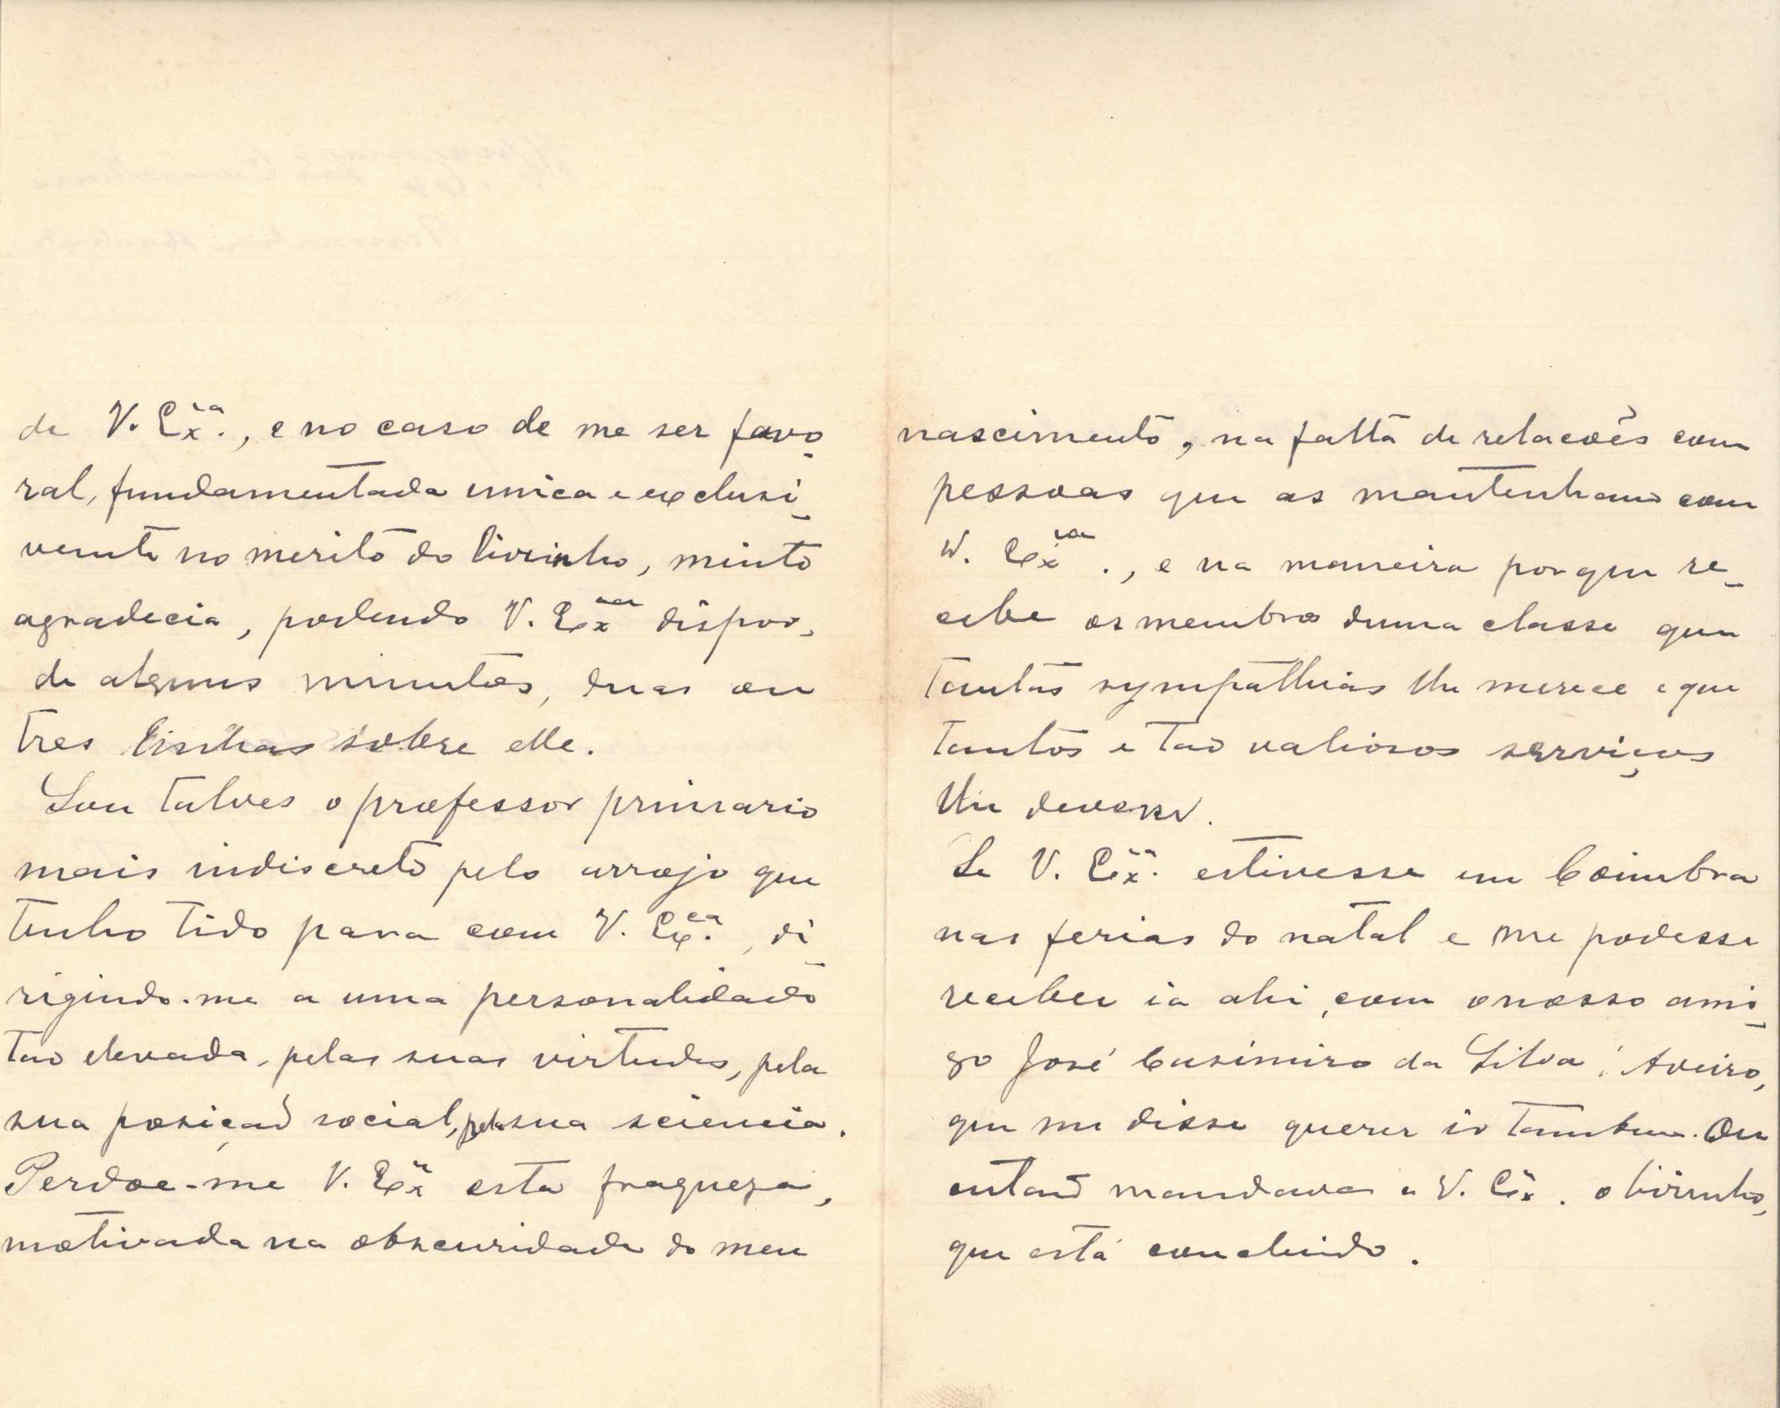 de V. Ex.ª, e no caso de me ser favo-
ral, fundamentada unica e exclusi-
vente no merito do livrinho, muito
agradecia, podendo V. Ex.ª dispor,
de alguns minutos, duas ou
tres linhas sobre elle.
Sou talves o professor primario
mais indiscreto pelo arrojo que
tenho tido para com V. Ex.ª, di-
rigindo-me a uma personalidade
tao elevada, pelas suas virtudes, pela
sua posição social, pela sua sciencia.
Perdoe-me V. Ex.ª esta fraqueza,
motivada na obscuridade do meu
nascimento, na falta de relacões com
pessoas que as mantenham com
V. Ex.ª, e na maneira porque re-
cebe os membros duma classe que
tantas sympathias lhe merece e que
tantos e tao valiosos serviços
lhe deve.
Se V. Ex.ª estivesse em Coimbra
nas ferias do natal e me podesse
receber ia ahi, com o nosso ami-
go José Casimiro da Silva, Aveiro,
que me disse querer ir tambem. Ou
entao mandava a V. Ex.ª o livrinho,
que está concluido.